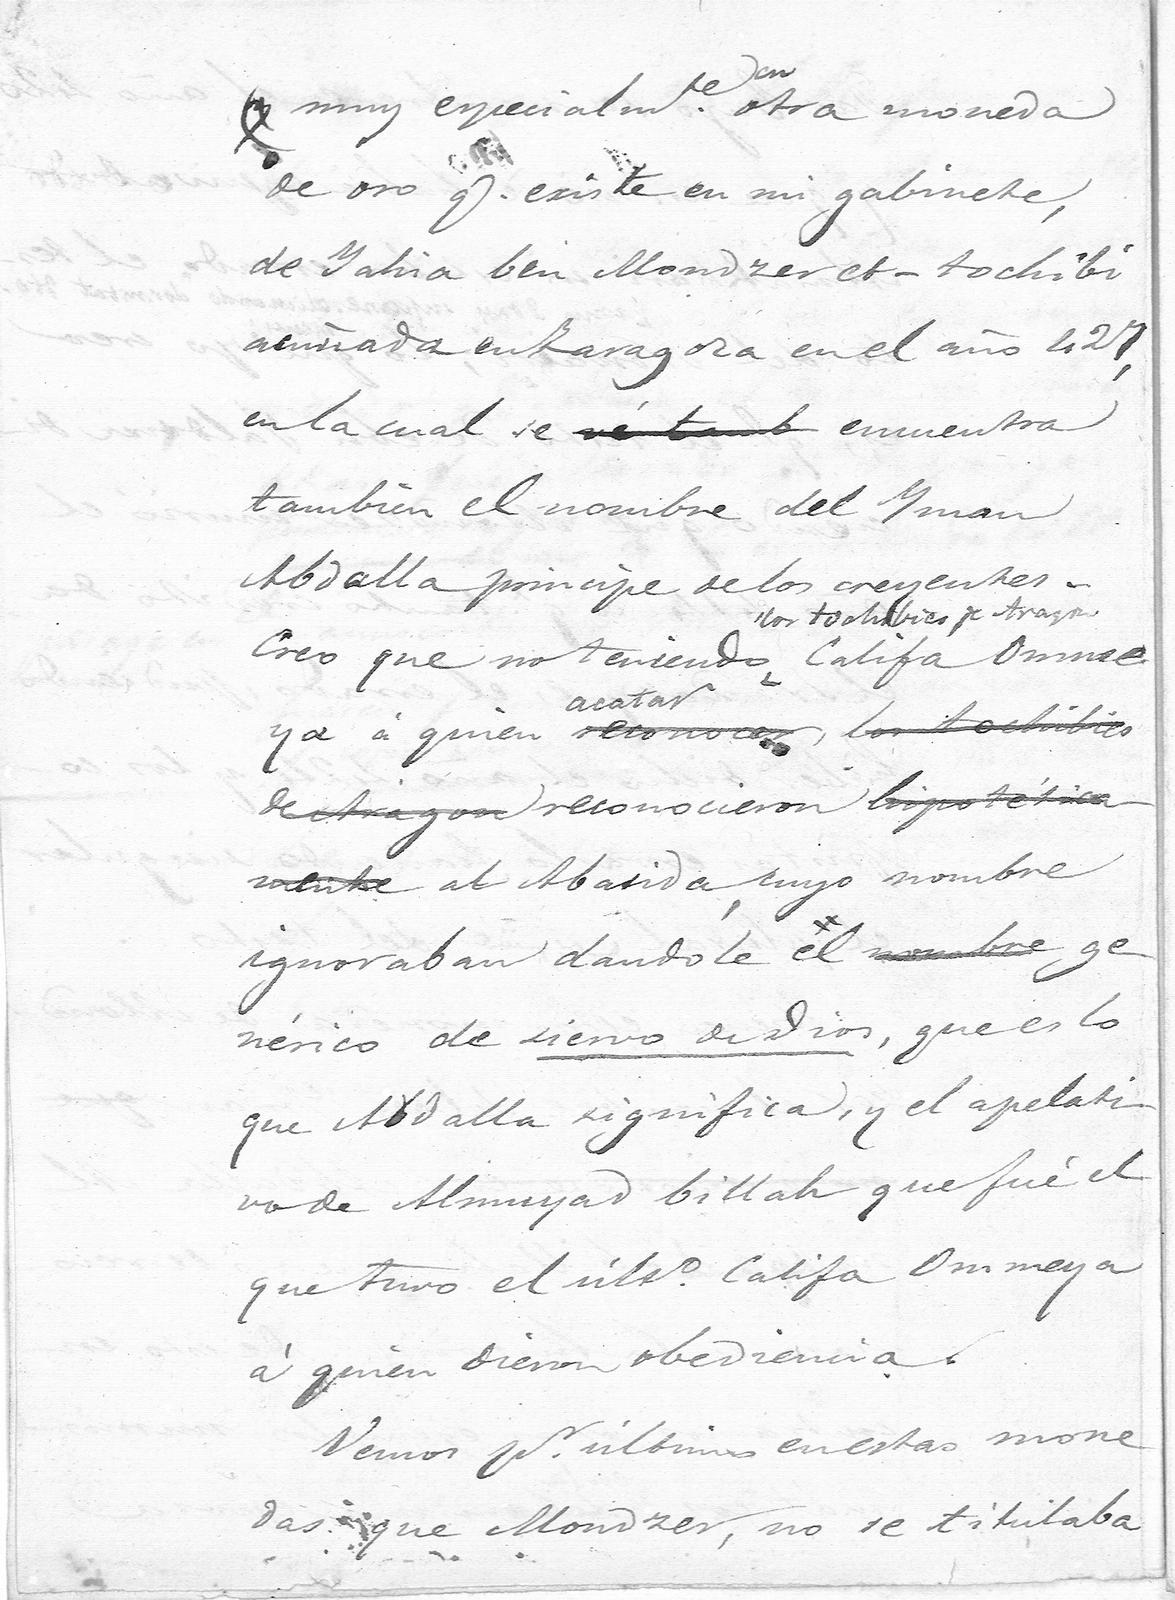 y muy especialm.te en otra moneda
de oro q. existe en mi gabinete,
de Yahia ben Mondzer et-tochibi
acuñada en Zaragoza en el año 427,
en la cual se vé tamb encuentra
tambien el nombre del Yman
Abdalla principe de los creyentes.
los tochibies de Aragon
Creo que no teniendo Califa Omme
acatar
ya á quien reconocer, los tochibies
de Aragon reconocieron hipotética
mente al Abasida, cuyo nombre
ignoraban dandole el nombre ge
nérico de siervo de Dios, que es lo
que Abdalla significa, y el apelati-
vo de Almuyad billah que fué el
que tuvo el últ.o Califa Ommeya
á quien dieron obediencia.
Vemos p.r último en estas mone
das que Mondzer, no se titulaba